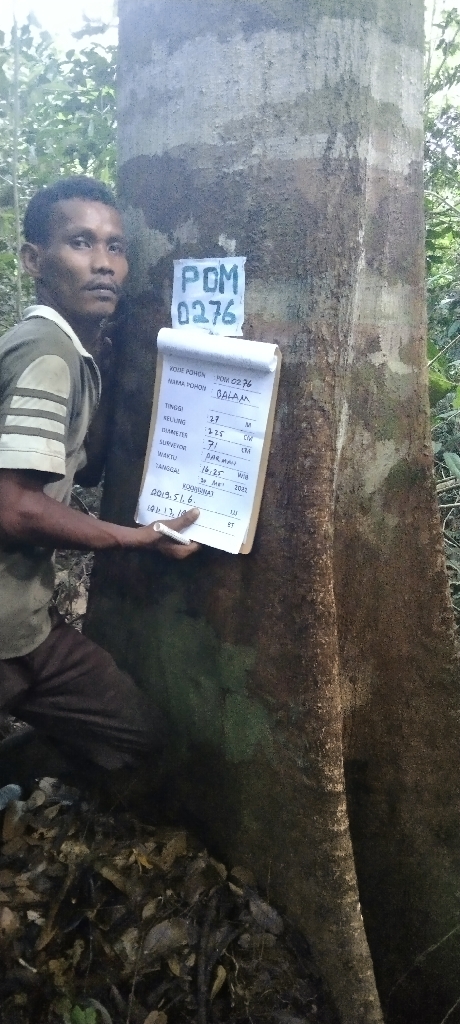 PDM
0276
KODE POHON : PDM 0276
NAMA POHON : BALAM
TINGGI : 27 M
KELILING : 225 CM
DIAMETER : 71 CM
SURVEYOR : PARMAN
WAKTU : 16.25 WIB
TANGGAL : 30 MEI 2022
KOORDINAT
0019.51.6. LU
BT